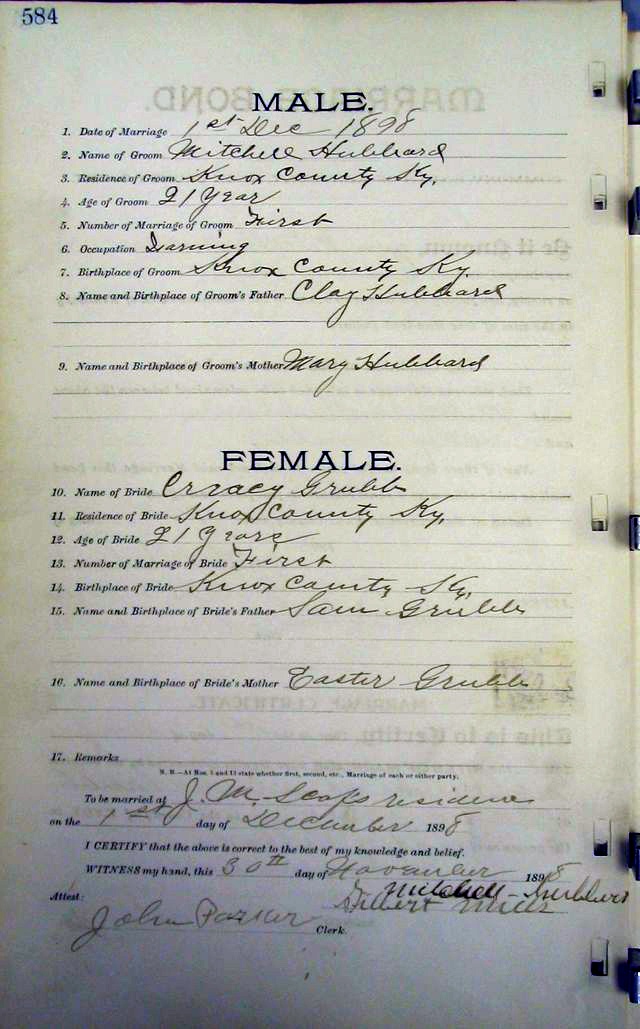 584
MALE.
1. Date of Marriage 1st Dec 1898
2. Name of Groom Mitchell Hubbard
3. Residence of Groom Knox County Ky.
4. Age of Groom 21 Year
5. Number of Marriage of Groom First
6. Occupation Farming
7. Birthplace of Groom Knox County Ky.
8. Name and Birthplace of Groom's Father Clay Hubbard
9. Name and Birthplace of Groom's Mother Mary Hubbard
FEMALE.
10. Name of Bride Grubb
11. Residence of Bride Knox County Ky.
12. Age of Bride 21 Years
13. Number of Marriage of Bride First
14. Birthplace of Bride Knox County Ky.
15. Name and Birthplace of Bride's Father Sam Grubb
16. Name and Birthplace of Bride's Mother Easter Grubb
17. Remarks
N. B.—At Nos. 5 and 13 state whether first, second, etc., Marriage of each or either party.
To be married at J. M. residence
on the 1st day of December 1898
I CERTIFY that the above is correct to the best of my knowledge and belief.
WITNESS my hand, this 30th day of November 1898
Mitchell Hubbard
Attest: Gilbert Mills
John Parker Clerk.